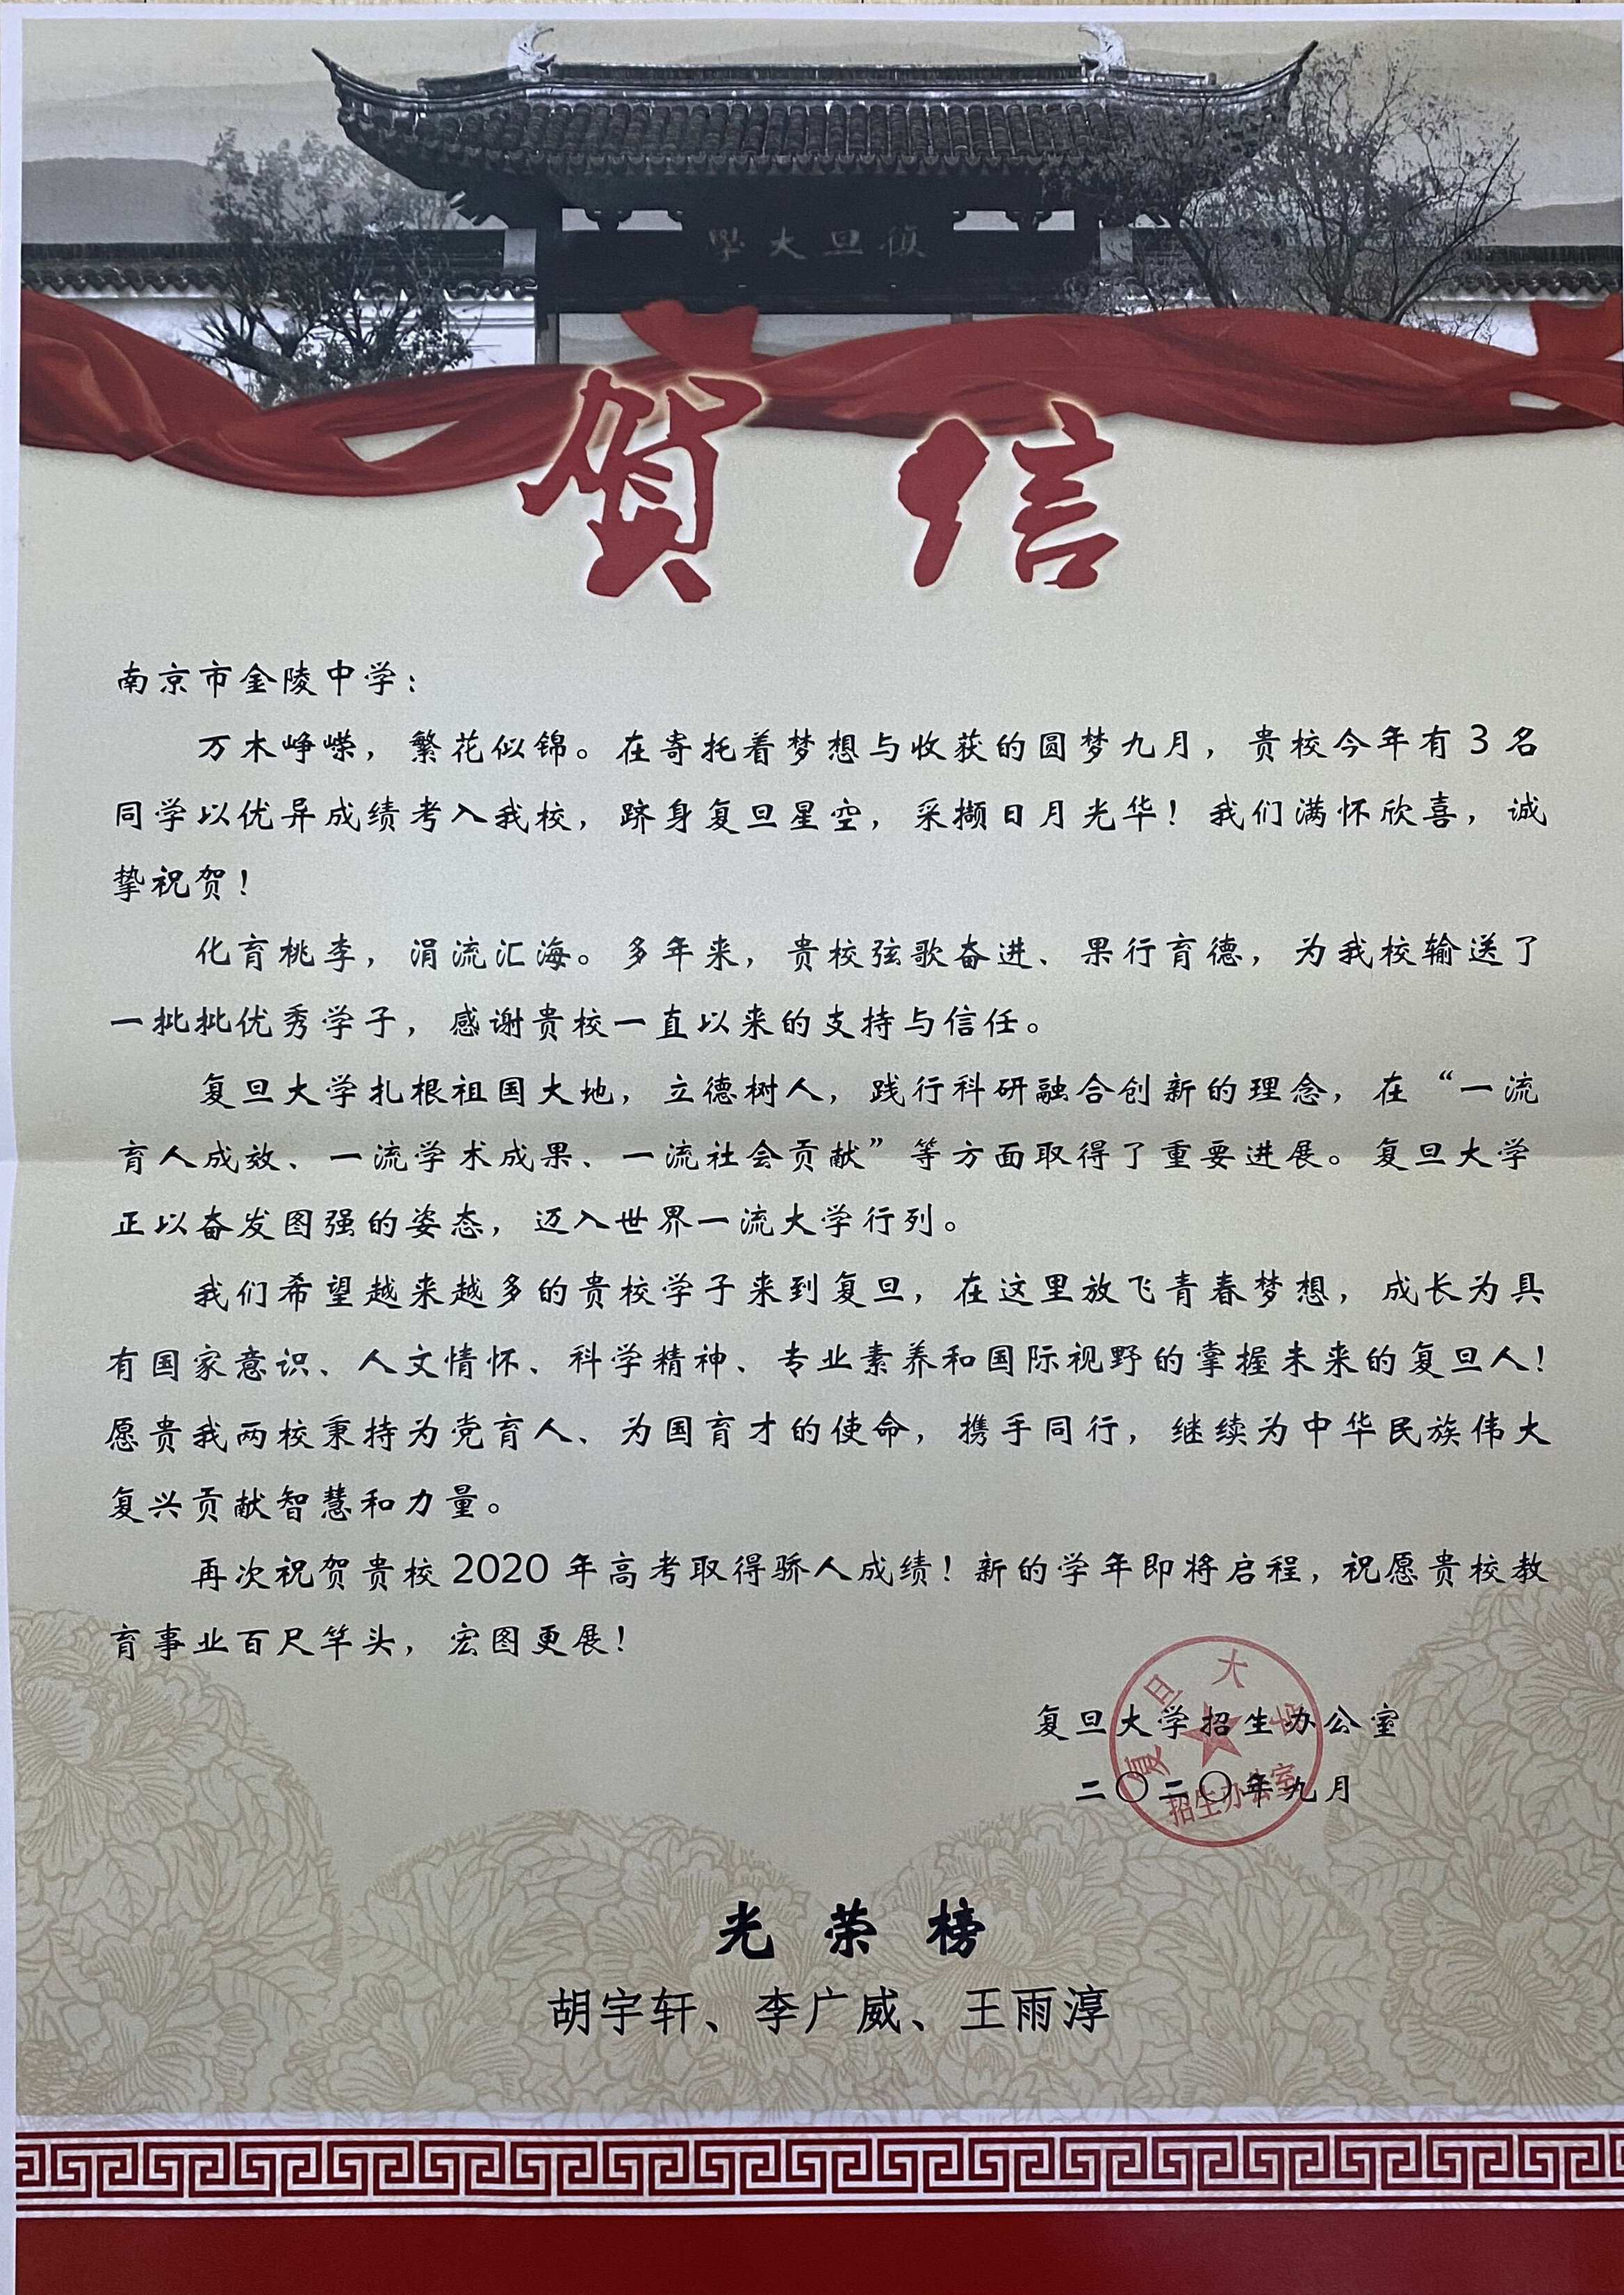 學大旦復
賀信
南京市金陵中学：
万木峥嵘，繁花似锦。在寄托着梦想与收获的圆梦九月，贵校今年有 3 名
同学以优异成绩考入我校，跻身复旦星空，采撷日月光华！我们满怀欣喜，诚
挚祝贺！
化育桃李，涓流汇海。多年来，贵校弦歌奋进、果行育德，为我校输送了
一批批优秀学子，感谢贵校一直以来的支持与信任。
复旦大学扎根祖国大地，立德树人，践行科研融合创新的理念，在“一流
育人成效、一流学术成果、一流社会贡献”等方面取得了重要进展。复旦大学
正以奋发图强的姿态，迈入世界一流大学行列。
我们希望越来越多的贵校学子来到复旦，在这里放飞青春梦想，成长为具
有国家意识、人文情怀、科学精神、专业素养和国际视野的掌握未来的复旦人！
愿贵我两校秉持为党育人、为国育才的使命，携手同行，继续为中华民族伟大
复兴贡献智慧和力量。
再次祝贺贵校 2020 年高考取得骄人成绩！新的学年即将启程，祝愿贵校教
育事业百尺竿头，宏图更展！
复旦大学招生办公室
二〇二〇年九月
复旦大学
招生办公室
光荣榜
胡宇轩、李广威、王雨淳